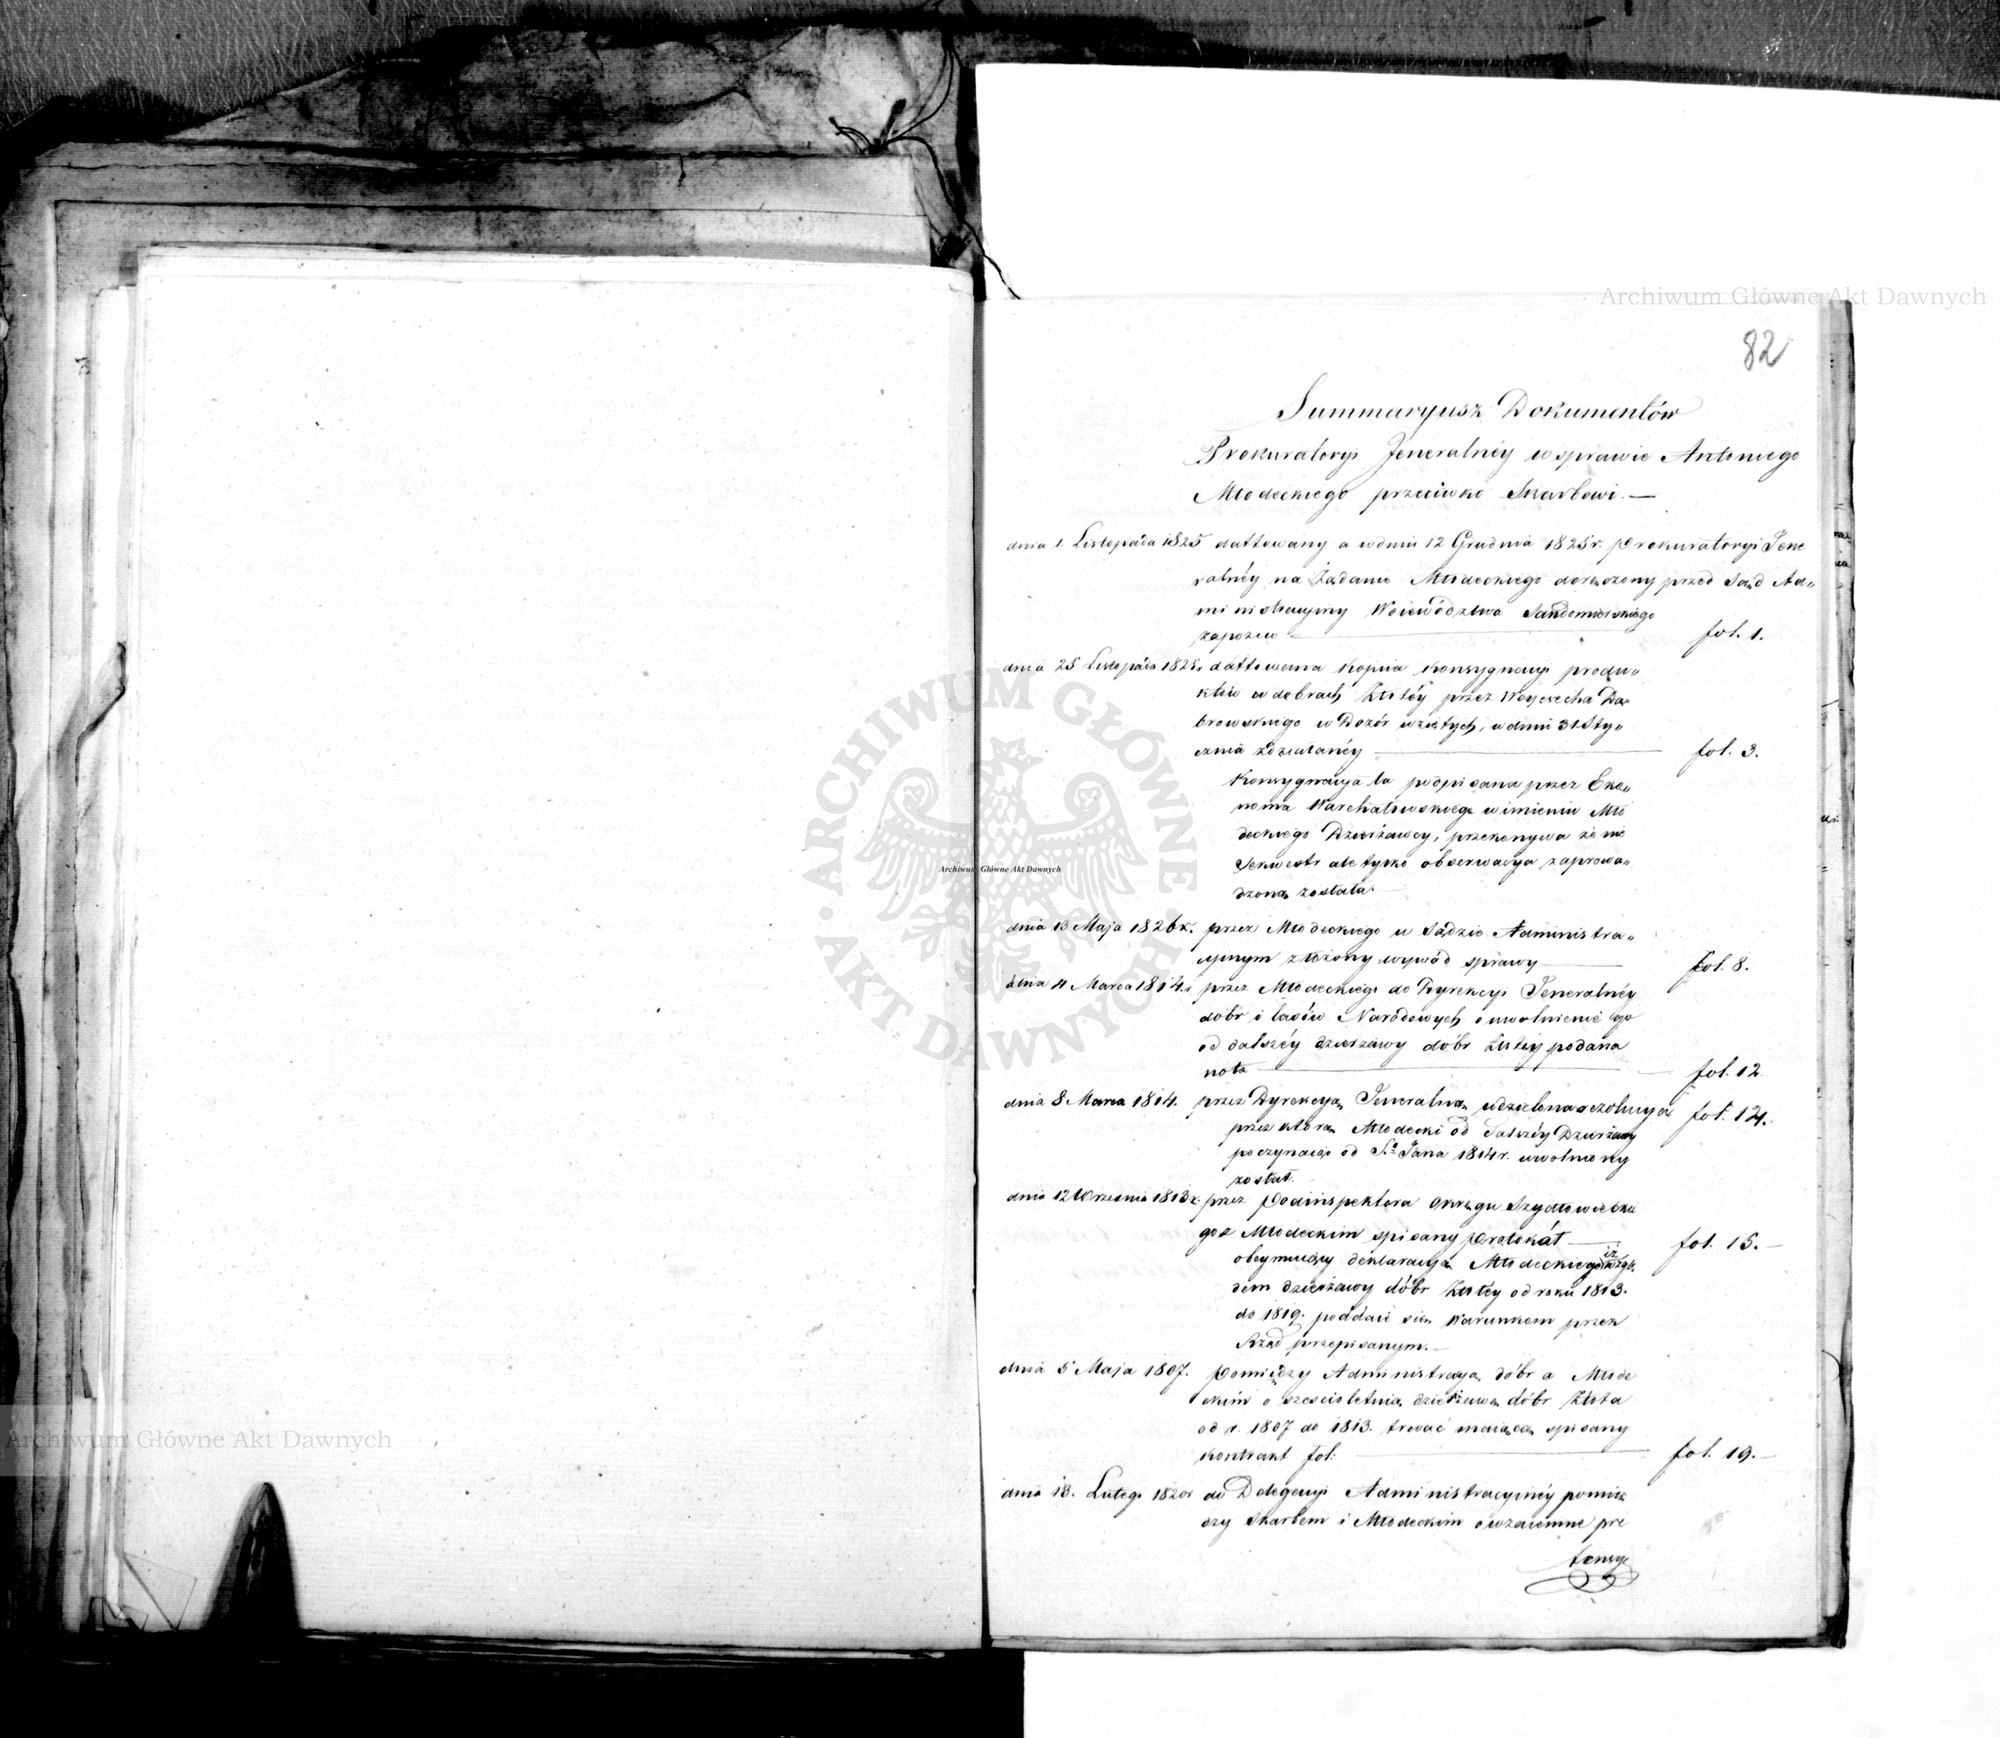 82
Summaryusz Dokumentów
Prokuratoryi Jeneralnéy w sprawie Antoniego
Młodeckiego przeciwko Skarbowi. —
dnia 1. Listopada 1825 dattowany a w dniu 12 Grudnia 1825 r. Prokuratoryi Jene
ralnéy na Żądanie Młodeckiego doręczony przed Sąd Ad=
ministracyiny Woiewództwa Sandomierskiego
zapozew — fol. 1.
dnia 25 Listopada 1825 r. dattowana kopia konsygnacyi produ=
któw w dobrach Złotéy przez Woyciecha Dą=
browskiego w Dozór wziętych, w dniu 31 Sty=
cznia zdziałanéy — fol. 3.
Konsygnacya ta podpisana przez Eko=
noma Warchałowskiego w imieniu Mło
deckiego Dzierżawcy, przekonywa że nie
Sekwestr ale tylko obserwacya zaprowa=
dzoną została. —
dnia 13 Maja 1826 r. przez Młodeckiego w Sądzie Administra=
cyinym złożony wywód sprawy — fol. 8.
dnia 4 Marca 1814. r przez Młodeckiego do Dyrekcyi Jeneralnéy
dobr i lasów Narodowych o uwolnienie go
od dalszéy dzierżawy dóbr Złotéy podana
nota — fol. 12
dnia 8 Marca 1814. przez Dyrekcyą Jeneralną udzielona rezolucya fol. 14.
przez którą Młodecki od dalszéy Dzierżawy
poczynaiąc od S.º Jana 1814 r. uwolniony
został.
dnia 12 Września 1813 r. przez Podinspektora Okręgu Szydłowieckie
go z Młodeckim spisany Protokół — fol. 15. —
obeymuiący deklaracyą Młodeckiego iż wzglę
dem dzierżawy dóbr Złotéy od roku 1813.
do 1819. poddaie się Warunkom przez
Rząd przepisanym. —
dnia 5 Maja 1807. Pomiędzy Administracyą dóbr a Młode
ckim o sześcioletnią dzierżawę dóbr Złota
od r. 1807 do 1813. trwać maiącą spisany
kontrakt fol: — fol. 19. —
dnia 18. Lutego 1820 r do Delegacyi Administracyinéy pomię
dzy Skarbem i Młodeckim o wzaiemne pre
tensye
Archiwum Główne Akt Dawnych
Archiwum Główne Akt Dawnych
Archiwum Główne Akt Dawnych
ARCHIWUM GŁÓWNE · AKT DAWNYCH ·